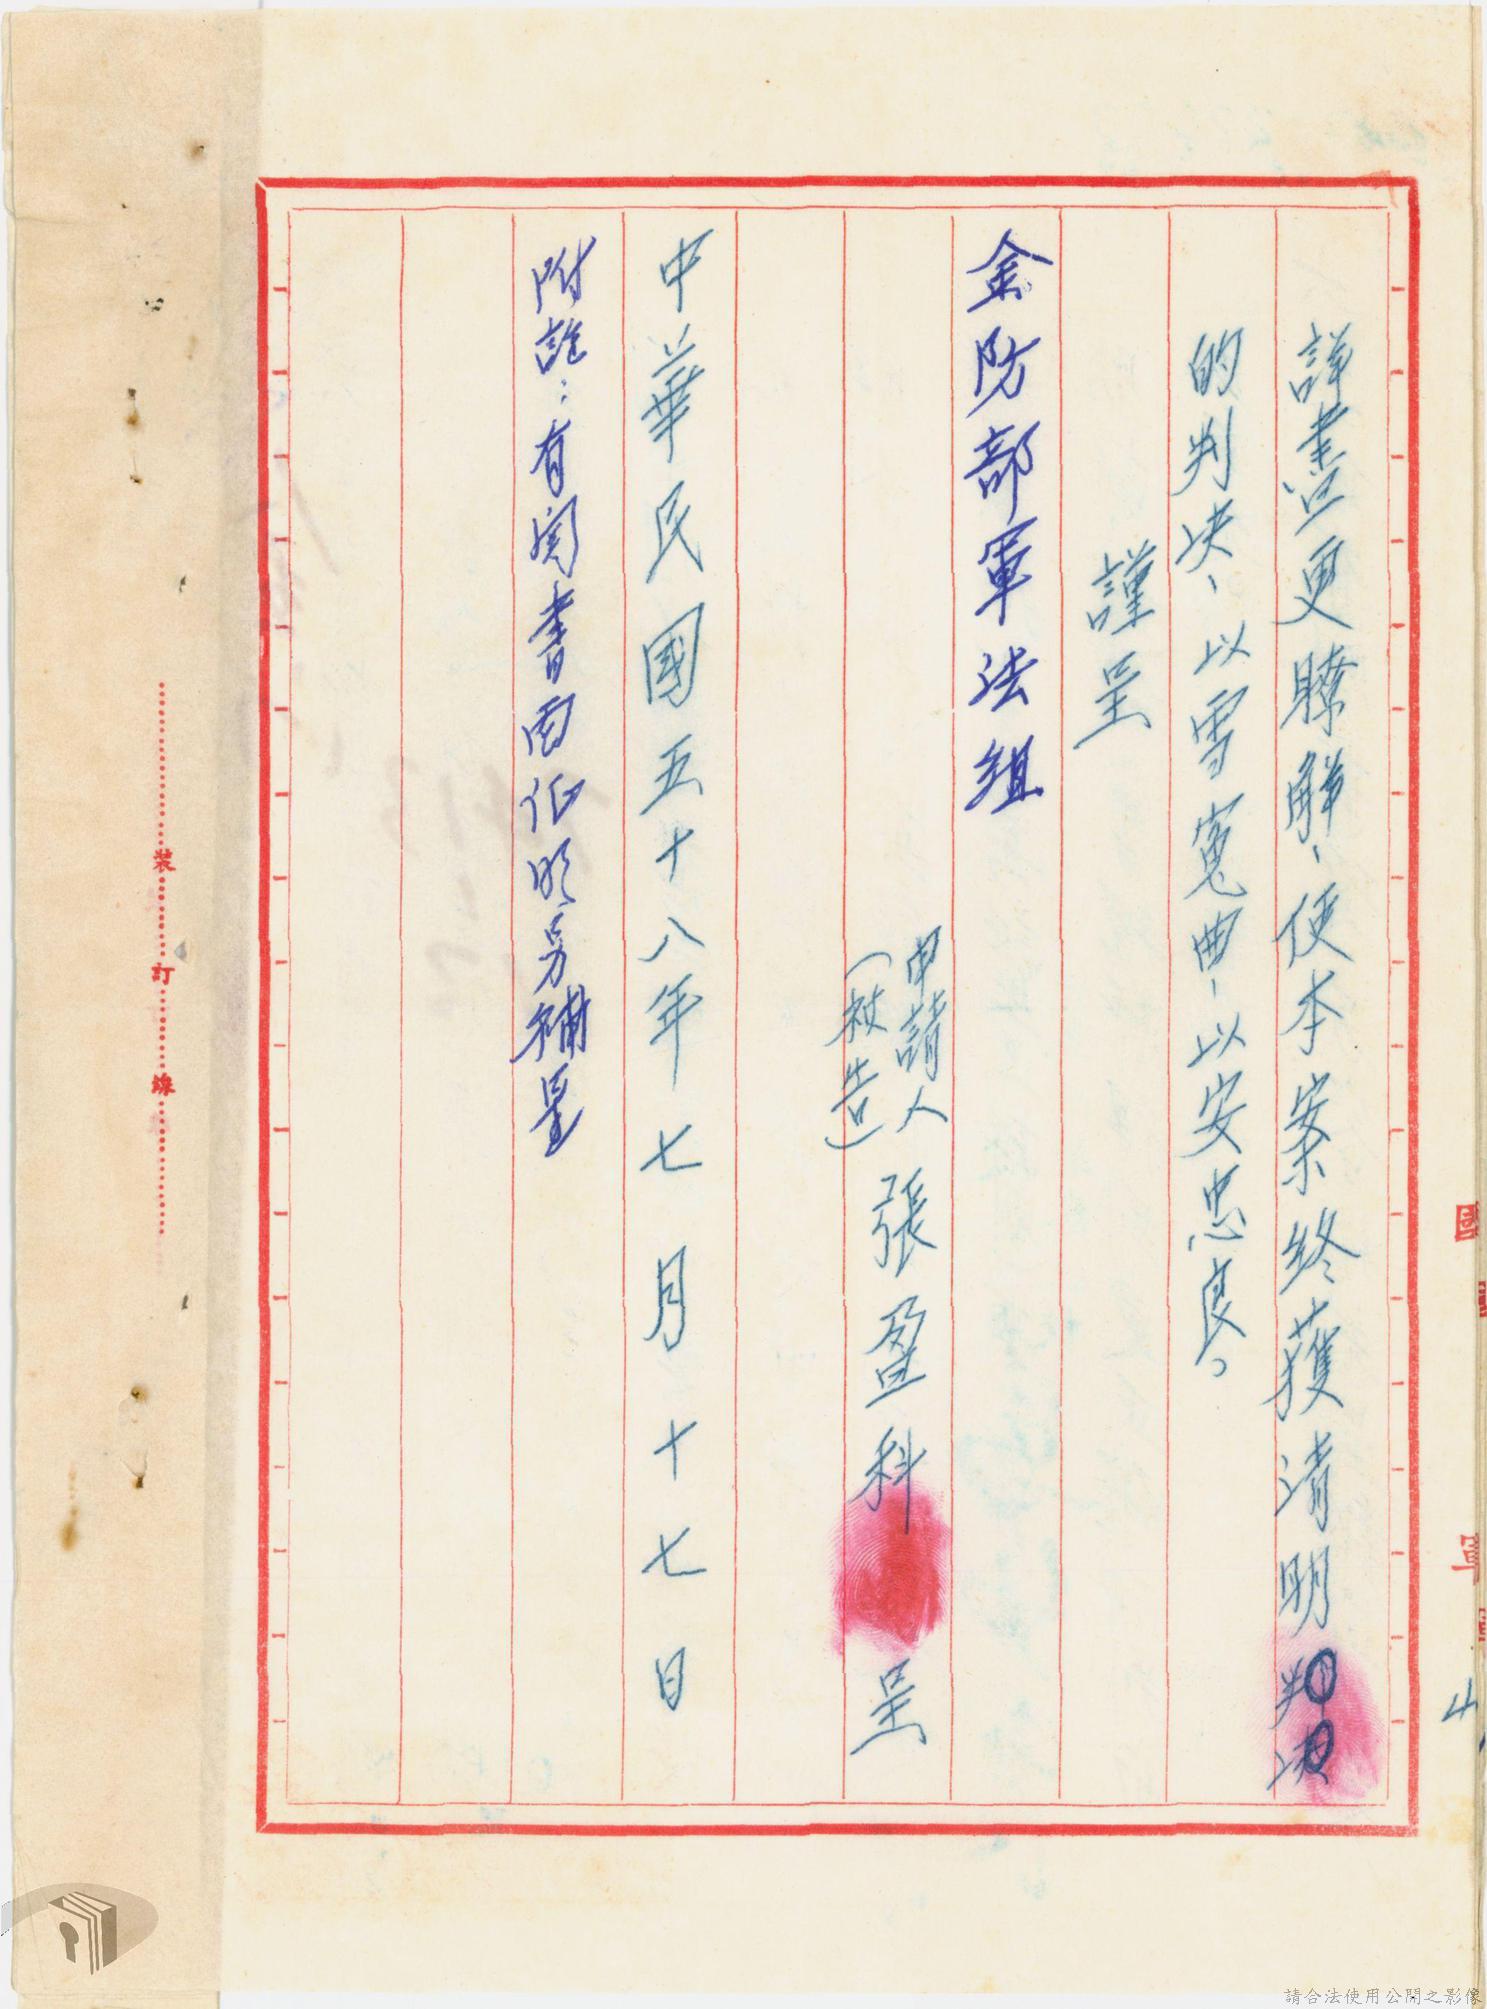 詳盡更瞭解、使本案終獲清明判决
的判决、以雪寃曲、以安忠良。
謹呈
金防部軍法組
申請人
(被告)
張盈科 呈
中華民國五十八年七月十七日
附註:有關書面佐明另補呈
裝 訂 線
國
軍
請合法使用公開之影像